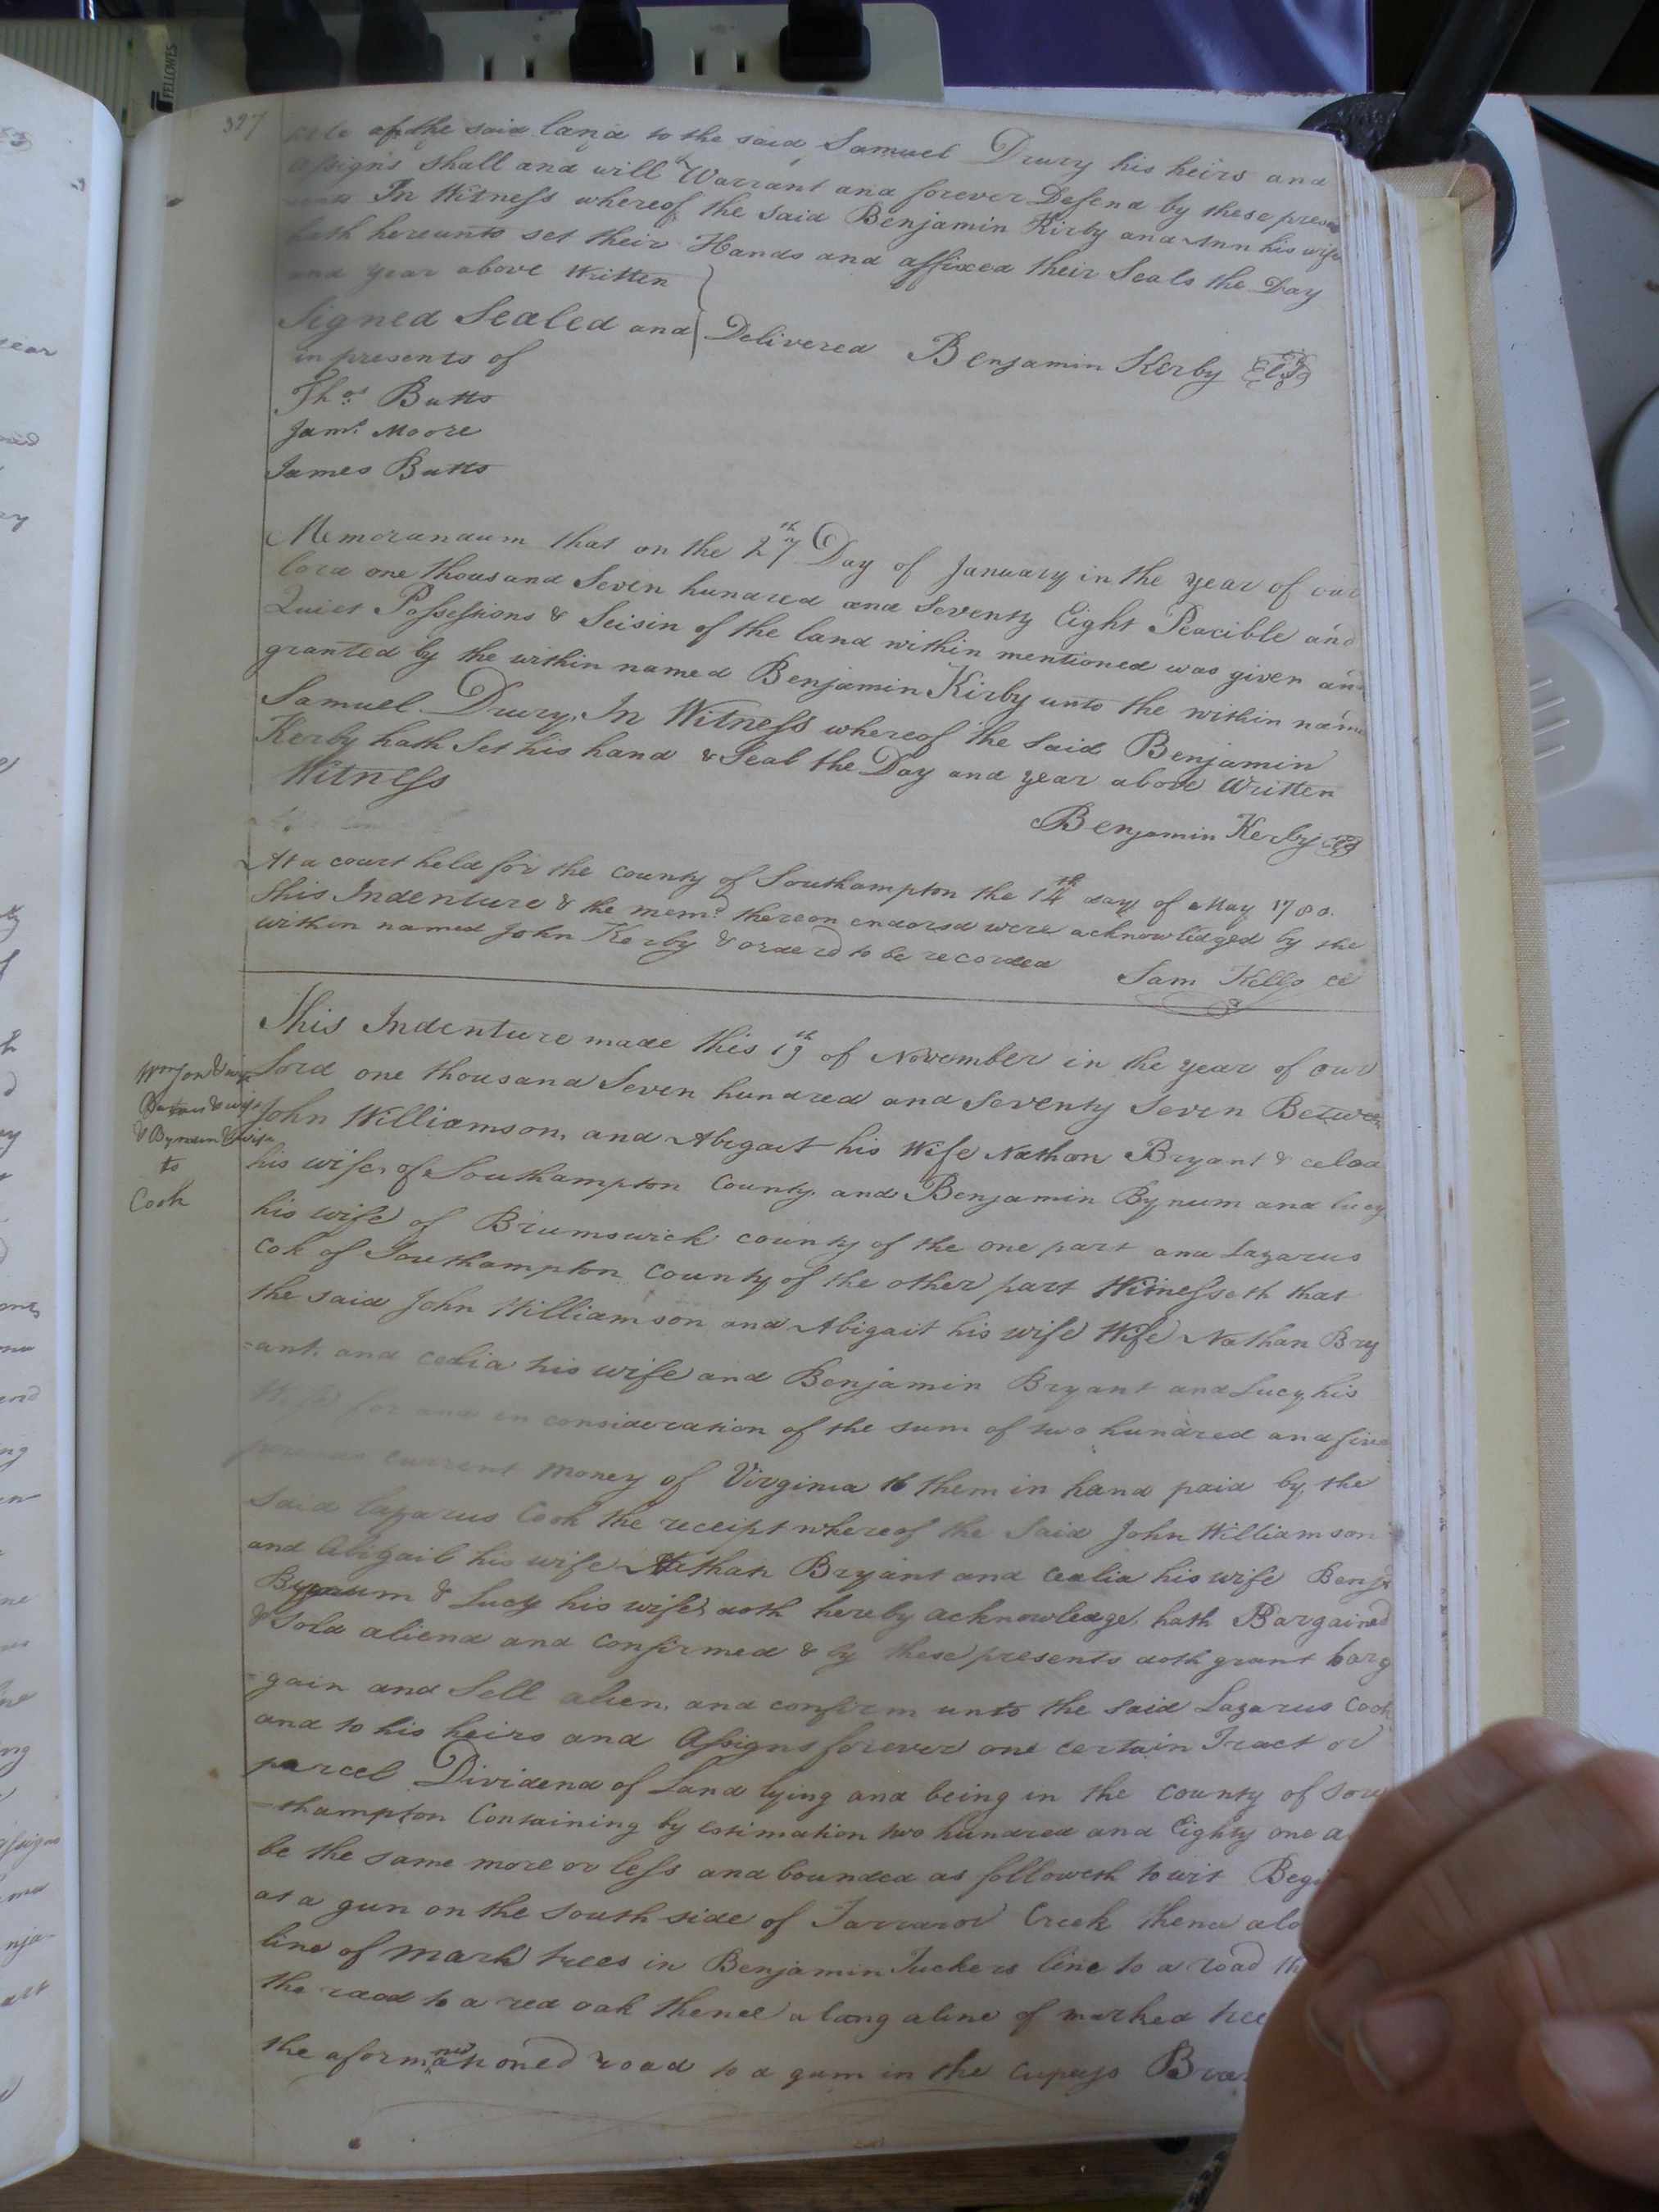 327
title of the said land to the said Samuel Drury his heirs and
Assigns shall and will Warrant and forever Defend by these prese
In Witness whereof the said Benjamin Kirby and Ann his wife
hath hereunto set their Hands and affixed their Seals the Day
and year above Written
Signed Sealed and Delivered Benjamin Kerby
in presents of
Thos. Butts
Jams. Moore
James Butts
Memorandum that on the 27th Day of January in the year of our
lord one thousand Seven hundred and Seventy Eight Peacible and
Quiet Possessions & Seisin of the land within mentioned was given and
granted by the within named Benjamin Kirby unto the within name
Samuel Drury, In Witness whereof the said Benjamin
Kerby hath Set his hand & Seal the Day and year above Written
Witness
Benjamin Kerby
At a court held for the county of Southampton the 14th day of May 1780.
This Indenture & the memd. thereon endorsd were acknowledged by the
within named John Kerby & orderd to be recorded
Sam Kello
This Indenture made this 19th of November in the year of our
Lord one thousand Seven hundred and Seventy Seven Between
John Williamson, and Abigail his Wife Nathan Bryant &
his wife of Southampton County and Benjamin Bynum and lucy
his wife of Brumswick county of the one part and Lazarus
Cok of Southampton County of the other part Witnesseth that
the said John Williamson and Abigail his wife Wife Nathan Bry
=ant. and Cedia his wife and Benjamin Bryant and Lucy his
Wife for and in consideration of the sum of two hundred and five
pounds current money of Virginia to them in hand paid by the
said lazarus Cook the receipt whereof the Said John Williamson
and Abigail his wife Nathan Bryant and Cealia his wife Benja
Bynum & Lucy his wife doth hereby acknowledge, hath Bargained
& Sold aliend and confirmed & by these presents doth grant barg
=gain and Sell alien, and confirm unto the said Lazarus Cook
and to his heirs and Assigns forever one certain Tract or
parcel Dividend of Land lying and being in the County of Sou
=thampton Containing by estimation two hundred and Eighty one a
be the same more or less and bounded as followeth to wit Begi
at a gun on the South side of Tarraror Creek thence alo
line of Mark trees in Benjamin Tuckers line to a road th
the road to a red oak thence along a line of marked tree
the aformentioned road to a gum in the Cypress Bra
Wmson & wife
& Bynum & wife
to
Cook
FELLOWES